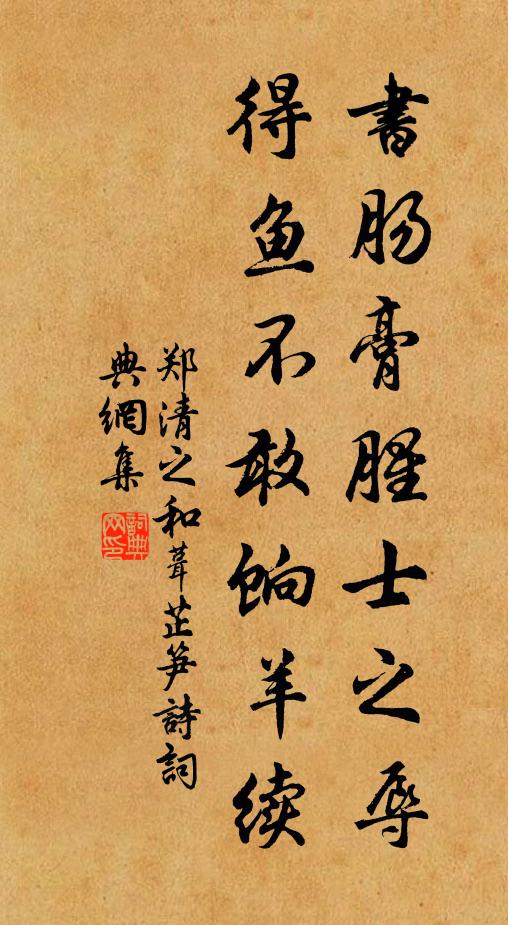 書肠膏腥士之辱
得鱼不敢饷羊续
郑清之和葺芷笋詩詞
典網集
詞典网印